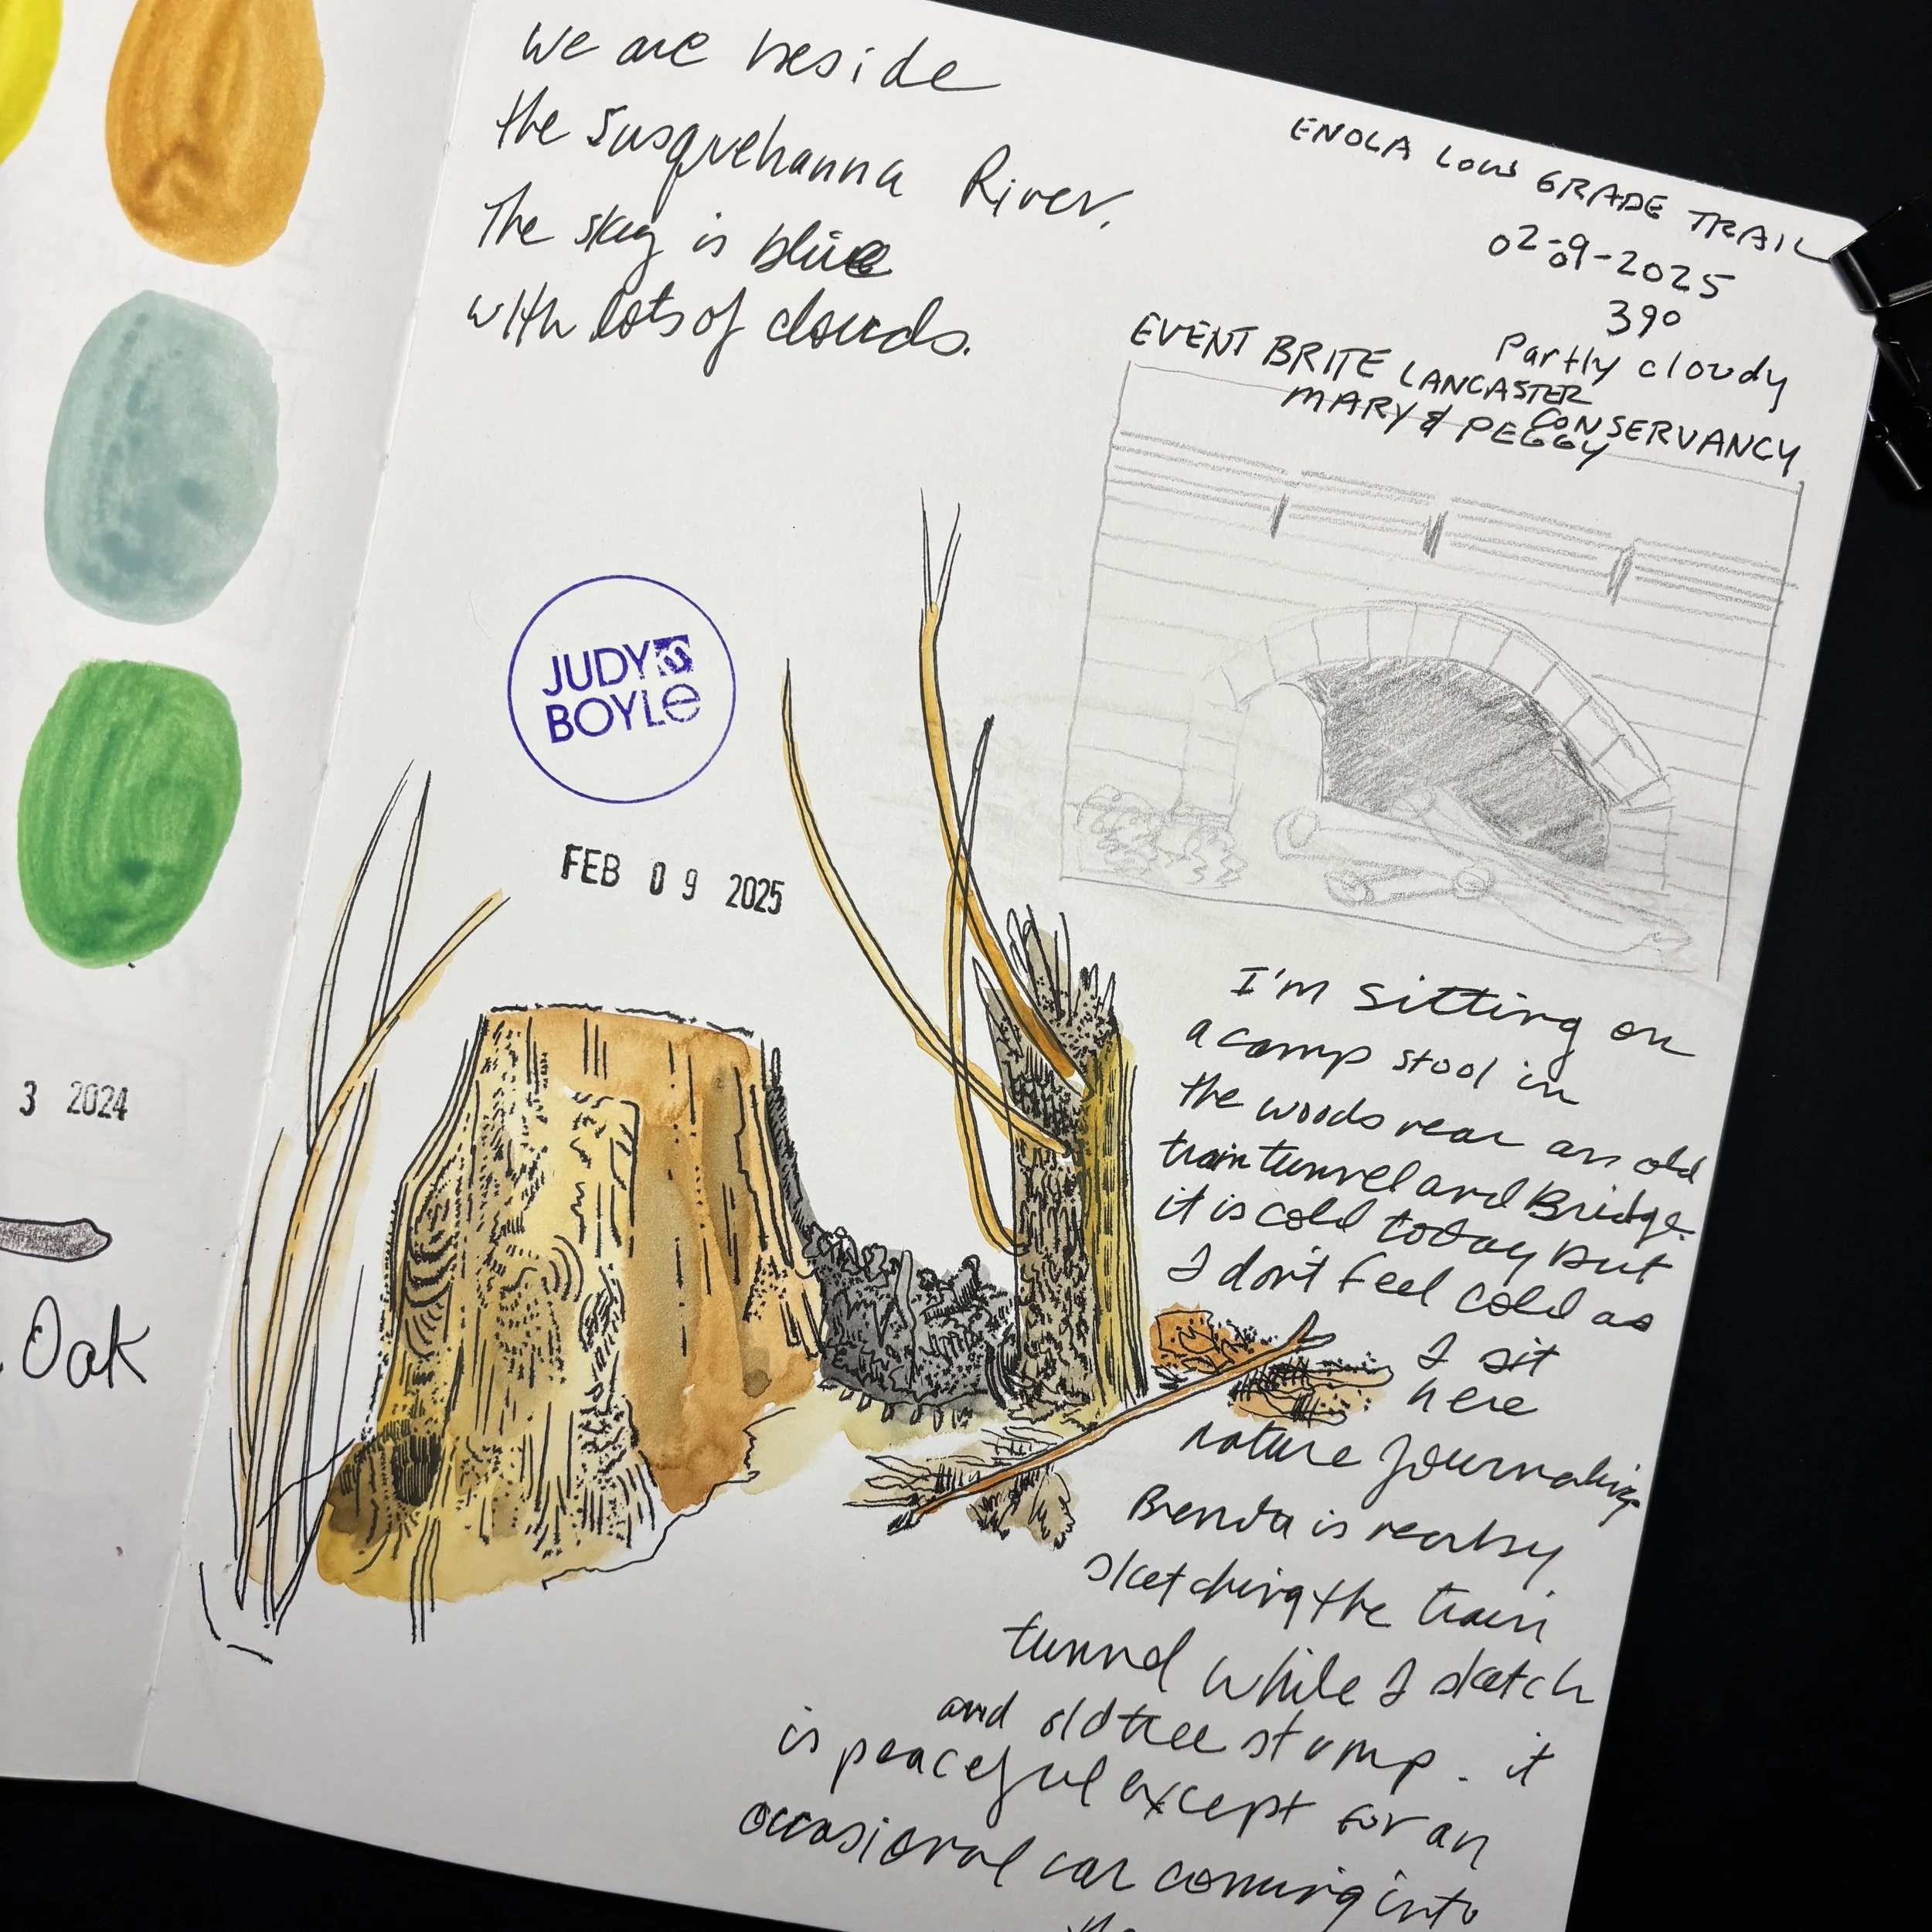 We are beside
the Susquehanna River.
The sky is blue
with lots of clouds.
ENOLA LOW GRADE TRAIL
02-09-2025
39°
Partly cloudy
EVENT BRITE LANCASTER
CONSERVANCY
MARY & PEGGY
JUDY
BOYLE
FEB 09 2025
I'm sitting on
a camp stool in
the woods near an old
train tunnel and Bridge.
it is cold today but
I don't feel cold as
I sit
here
nature journaling.
Brenda is nearby
sketching the train
tunnel while I sketch
and old tree stump. it
is peaceful except for an
occasional car coming into
the
3 2024
Oak